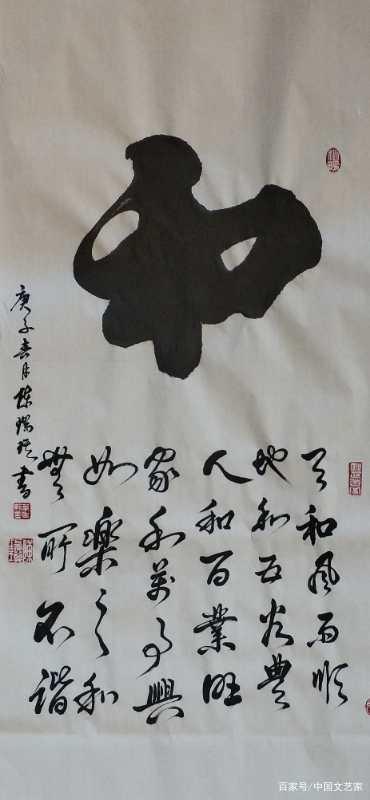 和
天和風雨順
地和五谷豐
人和百業旺
家和萬事興
如樂之和
無所不諧
庚子春月陳書
百家号/中国文艺家